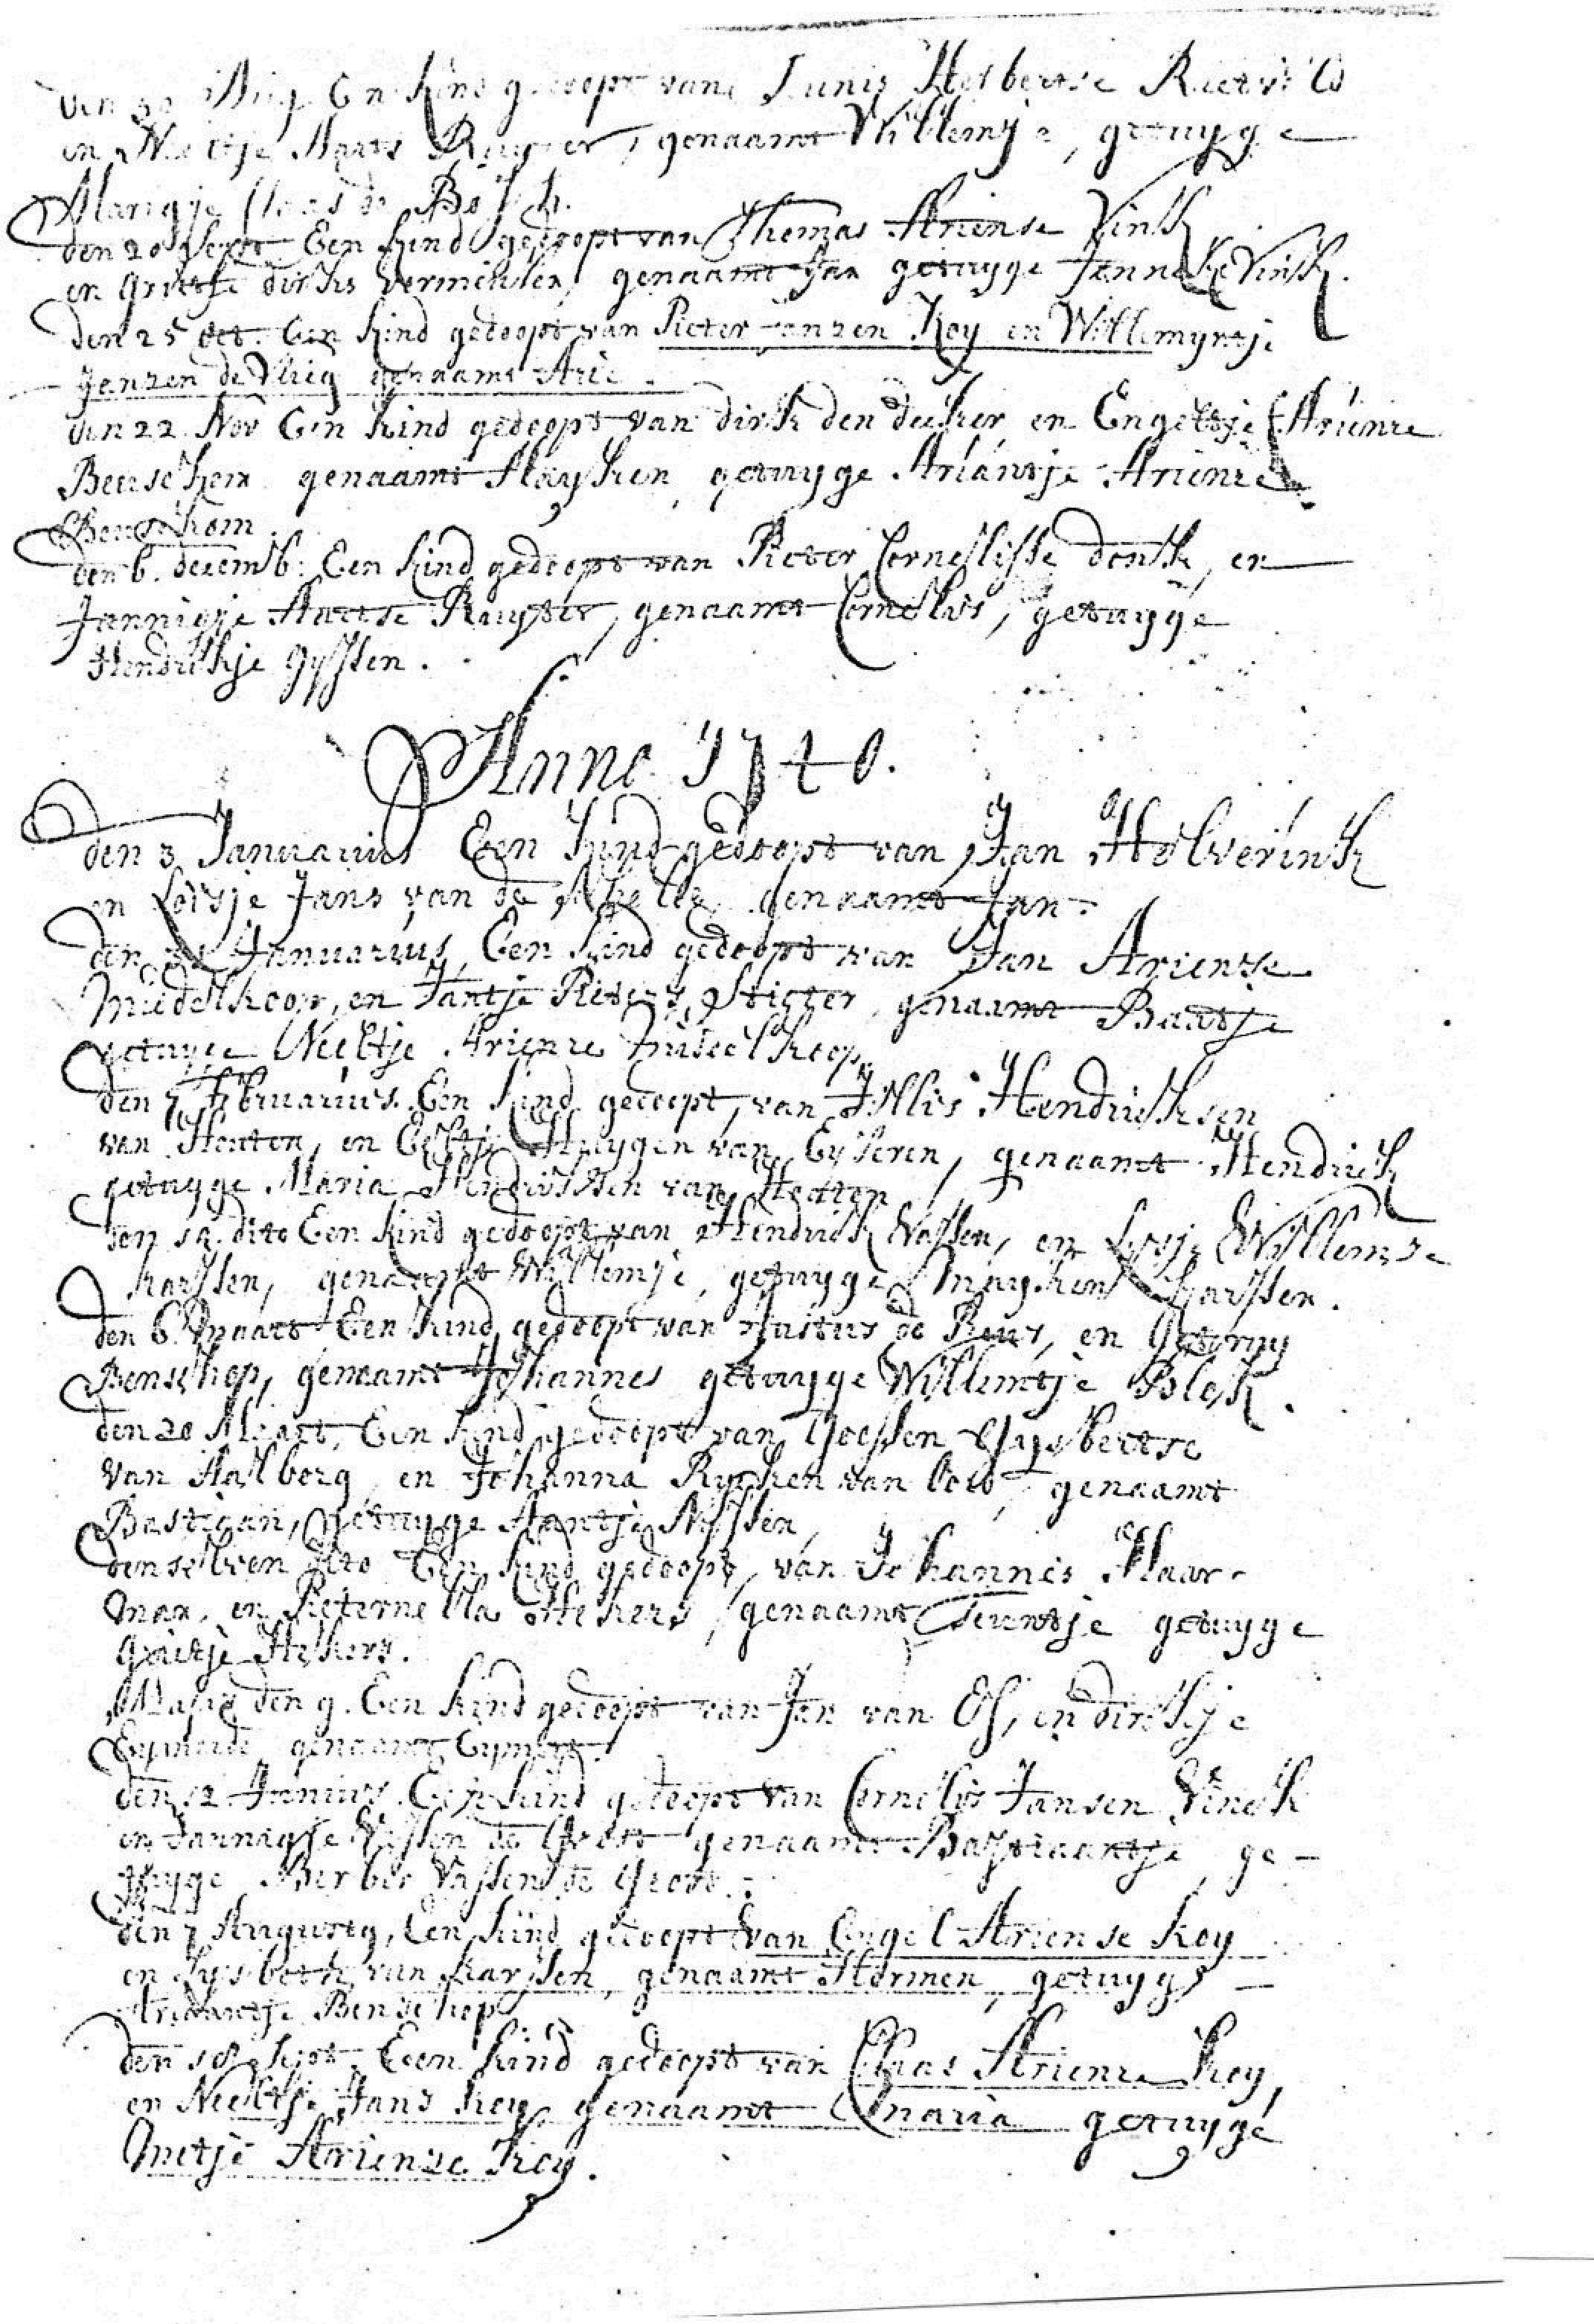 den 30 Aug Een kind gedoopt van Tunis Herbertse Rietvelt
en Neeltje Aarts Ruyter, genaamt Willemje, getuyge
Marigje
den 20 Sept Een kind gedoopt van Thomas Ariense Vink
en Grietje dirks vermeulen, genaamt Jan getuyge Janneke Vink.
den 25 oct. Een kind gedoopt van Pieter Janzen Koy en Willemyntje
Janzen de Vlieg genaamt Arie.
den 22 Nov Een kind gedoopt van dirk den decker en Engeltje Arienze
Benschkom genaamt Mayken, getuyge Ariantje Arienze
Benschkom.
den 6. decemb: Een kind gedoopt van Pieter Cornelisse donk, en
Jannigje Aartse Ruyter, genaamt Cornelis, getuyge
Hendrikje Gyssen.
Anno 1740.
den 3 Januarius Een kind gedoopt van Jan Holverink
en Lotsje Jans van de genaamt Jan.
den 31 Januarius, Een kind gedoopt van Jan Arienze
Middelkoop, en Jantje Pieters Stigter, genaamt Baatje
getuyge Neeltje Arienze Middelkoop,
den 7 Februarius. Een kind gedoopt, van Jillis Hendricksen
van Houten, en Eeltje Huygen van Eyteren, genaamt Hendrick
getuyge Maria Hendricksen van Houten
den 14. dito Een kind gedoopt van Hendrick Vassen, en Lysje Willemse
karssen, genaamt Willemje, getuyge Mayken karssen.
den 6. Maart Een kind gedoopt van Justus de Reus, en
Benschop, genaamt Johannes getuyge Willemtje Blok.
den 20 Maart, Een kind gedoopt van Goessen Gysbertse
van Halborg, en Johanna Rycken van loev, genaamt
Bastiaan, getuyge Aantje Nyssen,
denselven dito Een kind gedoopt, van Johannes Haar-
man, en Pieternella Hekers, genaamt Teuntje getuyge
Grietje Hekers.
Majus den 9. Een kind gedoopt van Jan van Es, en dirkje
Eymerde genaamt Eymert.
den 12. Junius. Een kind gedoopt van Cornelis Jansen Vinck
en Jannigje Vassen de Groot genaamt Bastiaantje, ge-
tuyge Berber Vassen de Groot.
den 7 Augustq, Een kind gedoopt van Engel Ariense Koy
en Lysbeth van karssen, genaamt Hermen, getuyge
Ariaantje Benschop
den 18 Sept. Een kind gedoopt van Claas Arienze Koy,
en Neeltje Jans Koy genaamt Maria getuyge
Metje Arienze Koy.